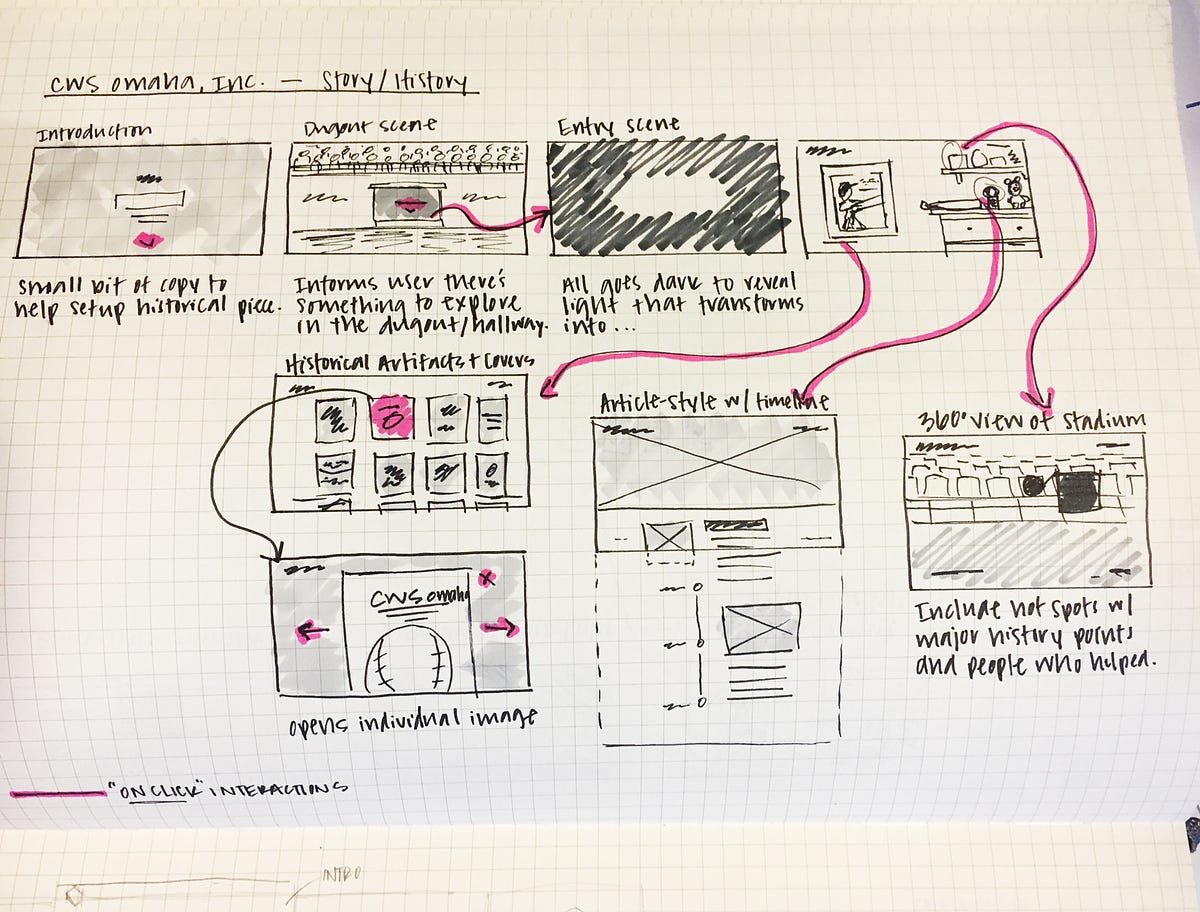 CWS Omaha, Inc. — Story/History
Introduction
Small bit of copy to
help setup historical piece.
Dugout scene
Informs user there's
something to explore
in the dugout/hallway.
Entry scene
All goes dark to reveal
light that transforms
into...
Historical Artifacts + Covers
CWS omaha
opens individual image
Article-style w/ timeline
360° view of Stadium
Include hot spots w/
major history points
and people who helped.
"ON CLICK" INTERACTIONS
INTRO